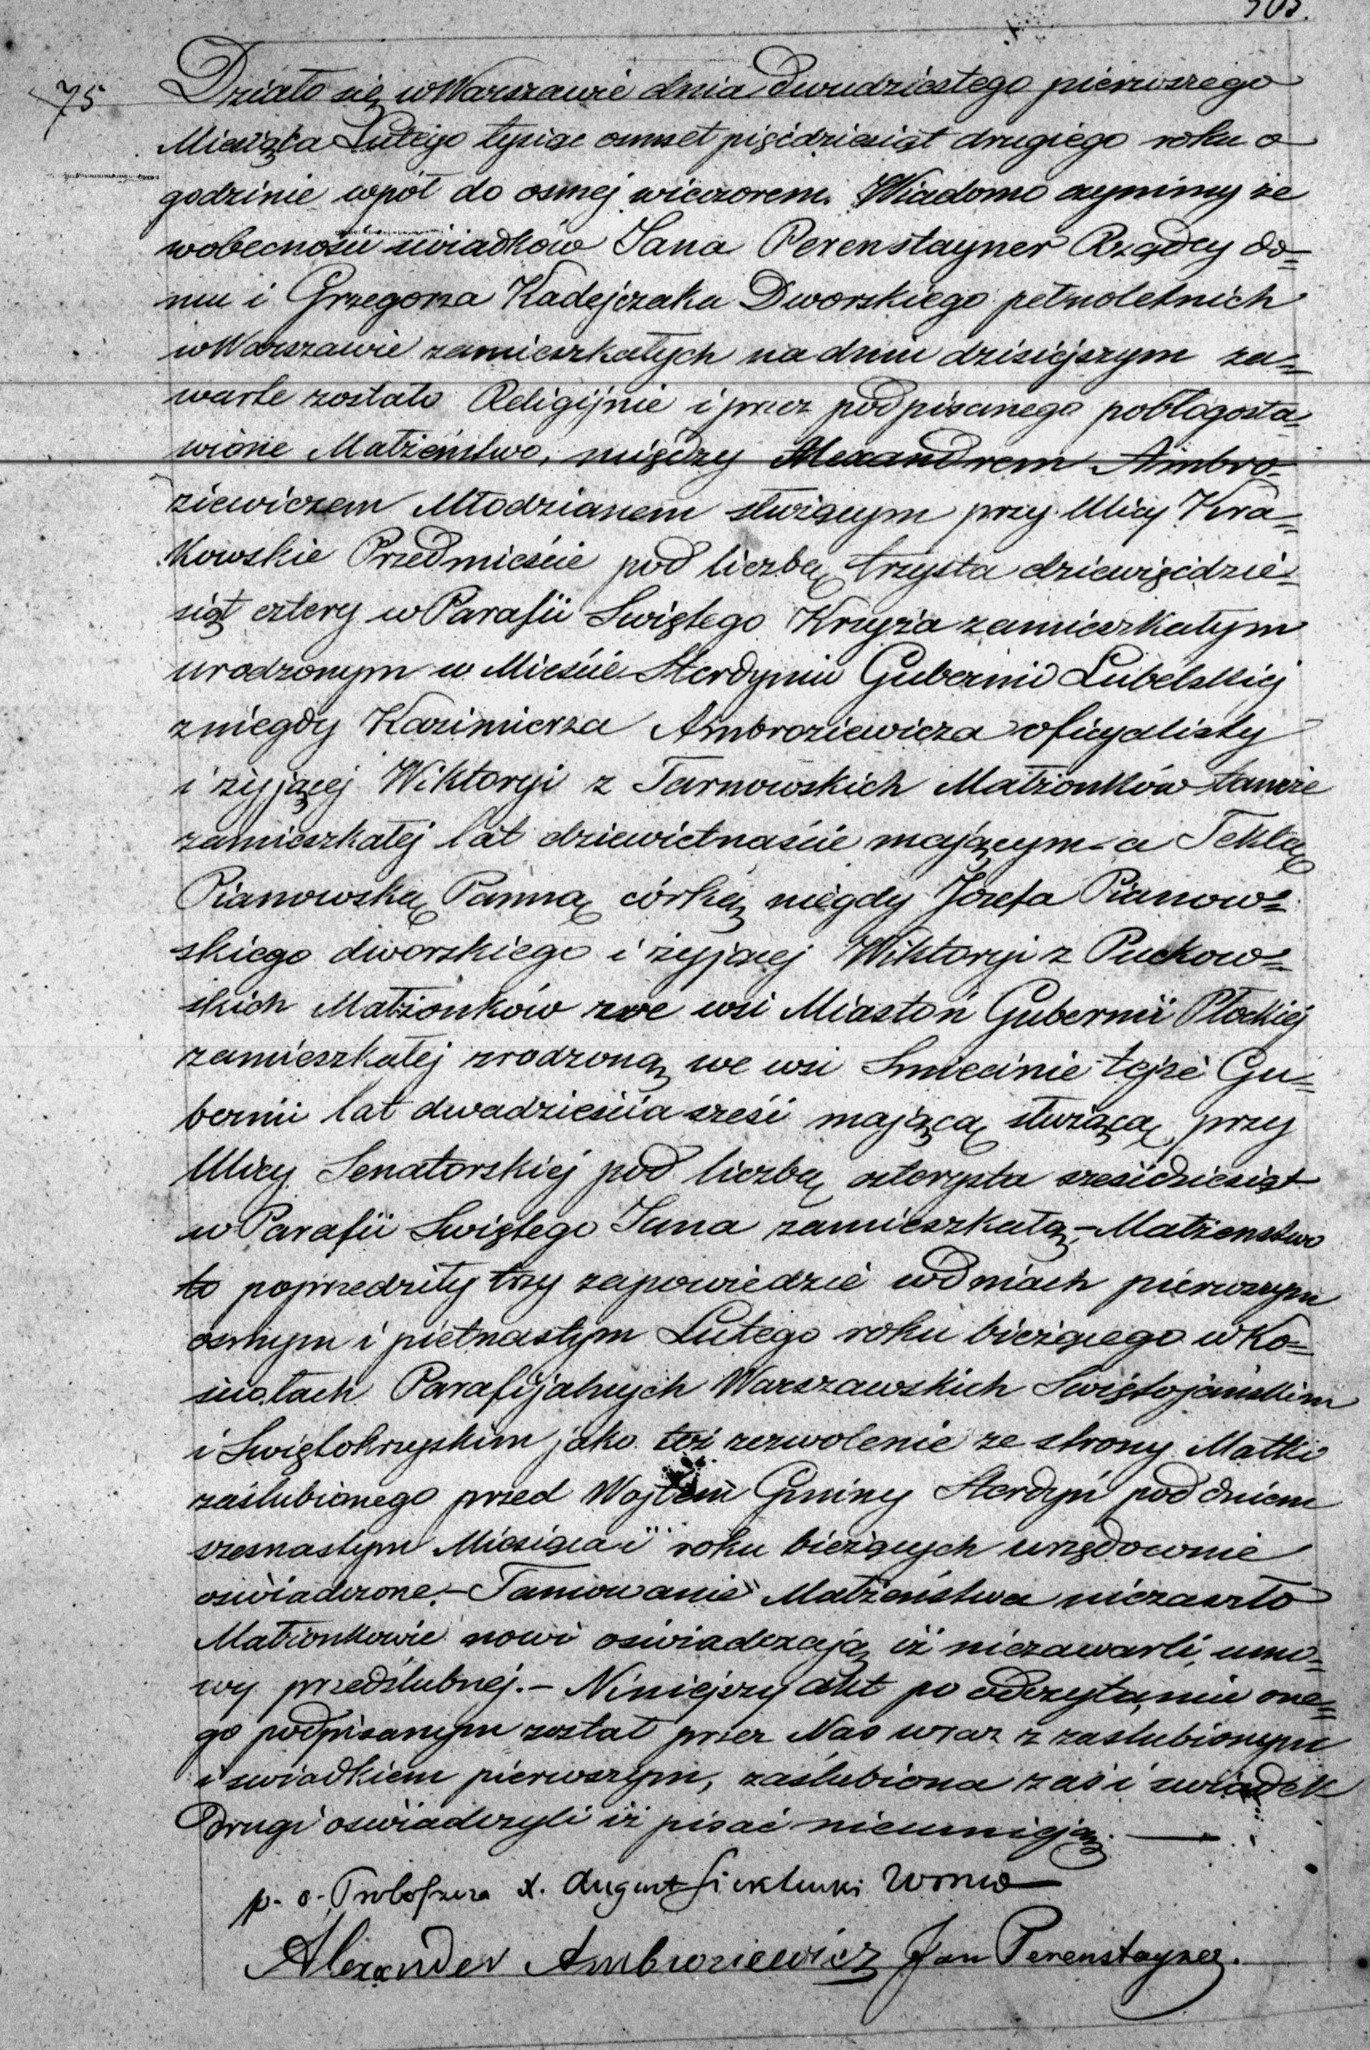 75
Działo się w Warszawie dnia dwudziestego pierwszego
Miesiąca Lutego tysiąc ośmset pięśdziesiąt drugiego roku o
godzinie wpół do osmej wieczorem. Wiadomo czynimy że
wobecności swiadków Jana Perenstayner Rządcy do=
mu i Grzegorza Kadejczaka Dworskiego pełnoletnich
w Warszawie zamieszkałych na dniu dzisiejszym za=
warte zostało Religijnie i przez podpisanego pobłogosła-
wione Małżeństwo, między Alexandrem Ambro-
ziewiczem Młodzianem służącym przy Ulicy Kra=
kowskie Przedmieście pod liczbą trzysta dziewięćdzie=
siąt cztery w Parafii Swiętego Krzyża zamieszkałym
urodzonym w Mieście Sterdyniu Gubernii Lubelskiej
z niegdy Kazimierza Ambroziewicza oficyalisty
i żyjącej Wiktoryi z Tarnowskich Małżonków tamże
zamieszkałej lat dziewietnaście mającym - a Teklą
Pianowską Panną córką niegdy Józefa Pianow=
skiego dworskiego i żyjącej Wiktoryi z Puckow=
skich Małżonków we wsi Miastoń Gubernii Płockiej
zamieszkałej zrodzoną we wsi Smiecinie tejże Gu=
bernii lat dwadzieścia sześć mającą służącą przy
Ulicy Senatorskiej pod liczbą czterysta sześćdziesiąt
w Parafii Swiętego Jana zamieszkałą - Małżenstwo
to poprzedziły trzy zapowiedzie w dniach pierwszym
osmym i pietnastym Lutego roku bieżącego w Ko=
ściołach Parafijalnych Warszawskich Swiętojańskim
i Swiętokrzyskim jako też zezwolenie ze strony Matki
zaślubionego przed Wojtem Gminy Sterdyń pod dniem
szesnastym Miesiąca i roku bieżących urzędownie
oświadczone. - Tamowanie Małżeństwa niezaszło
Małżonkowie nowi oświadczają iż niezawarli umo=
wy przedślubnej. - Niniejszy akt po odczytaniu one=
go podpisanym został przez Nas wraz z zaslubionym
i swiadkiem pierwszym, zaślubiona zaś i swiadek
drugi oświadczyli iż pisać nieumieją.
p. o. Proboszcza X. August
Alexander Ambroziewicz Jan Perenstayner.